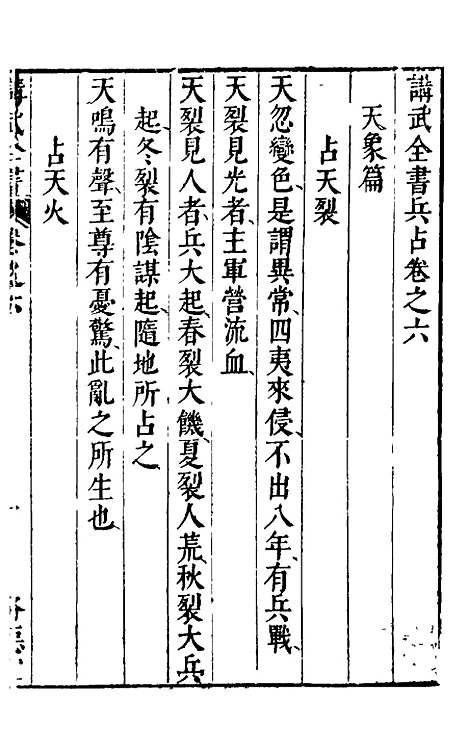 講武全書兵占卷之六
天象篇
占天裂
天忽變色、是謂異常、四夷來侵、不出八年、有兵戰、
天裂見光者、主軍營流血、
天裂見人者、兵大起、春裂大饑、夏裂人荒、秋裂大兵
起、冬裂有陰謀起、隨地所占之、
天鳴有聲、至尊有憂驚、此亂之所生也、
占天火